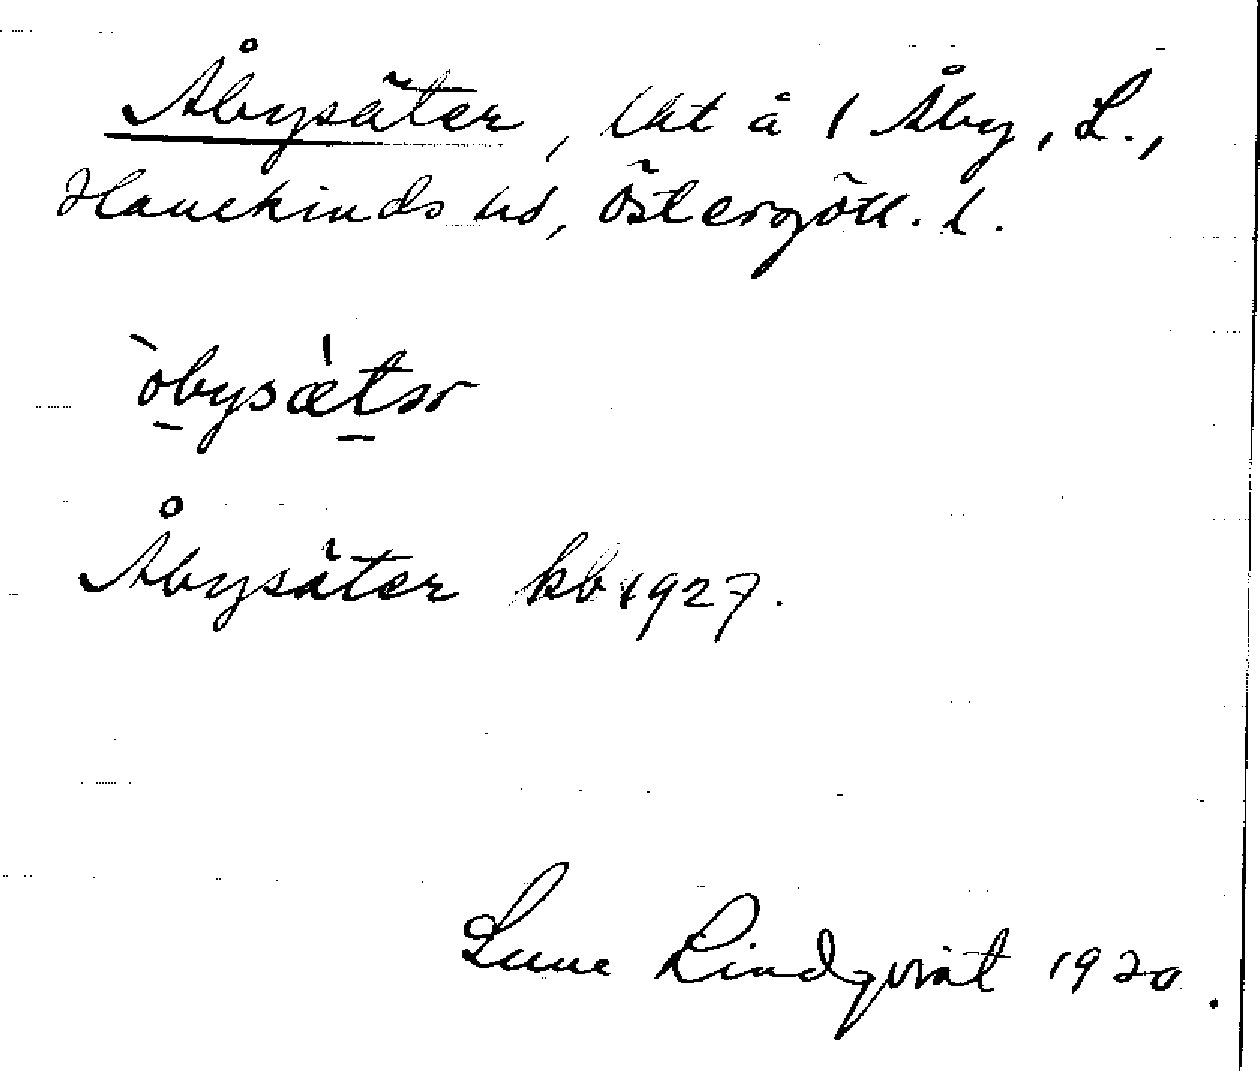 Åbysäter, lht å 1 Åby, L.,
Hanekinds hd, Östergötl. l.
òbysætər
Åbysäter kb 1927.
Sune Lindqvist 1920.